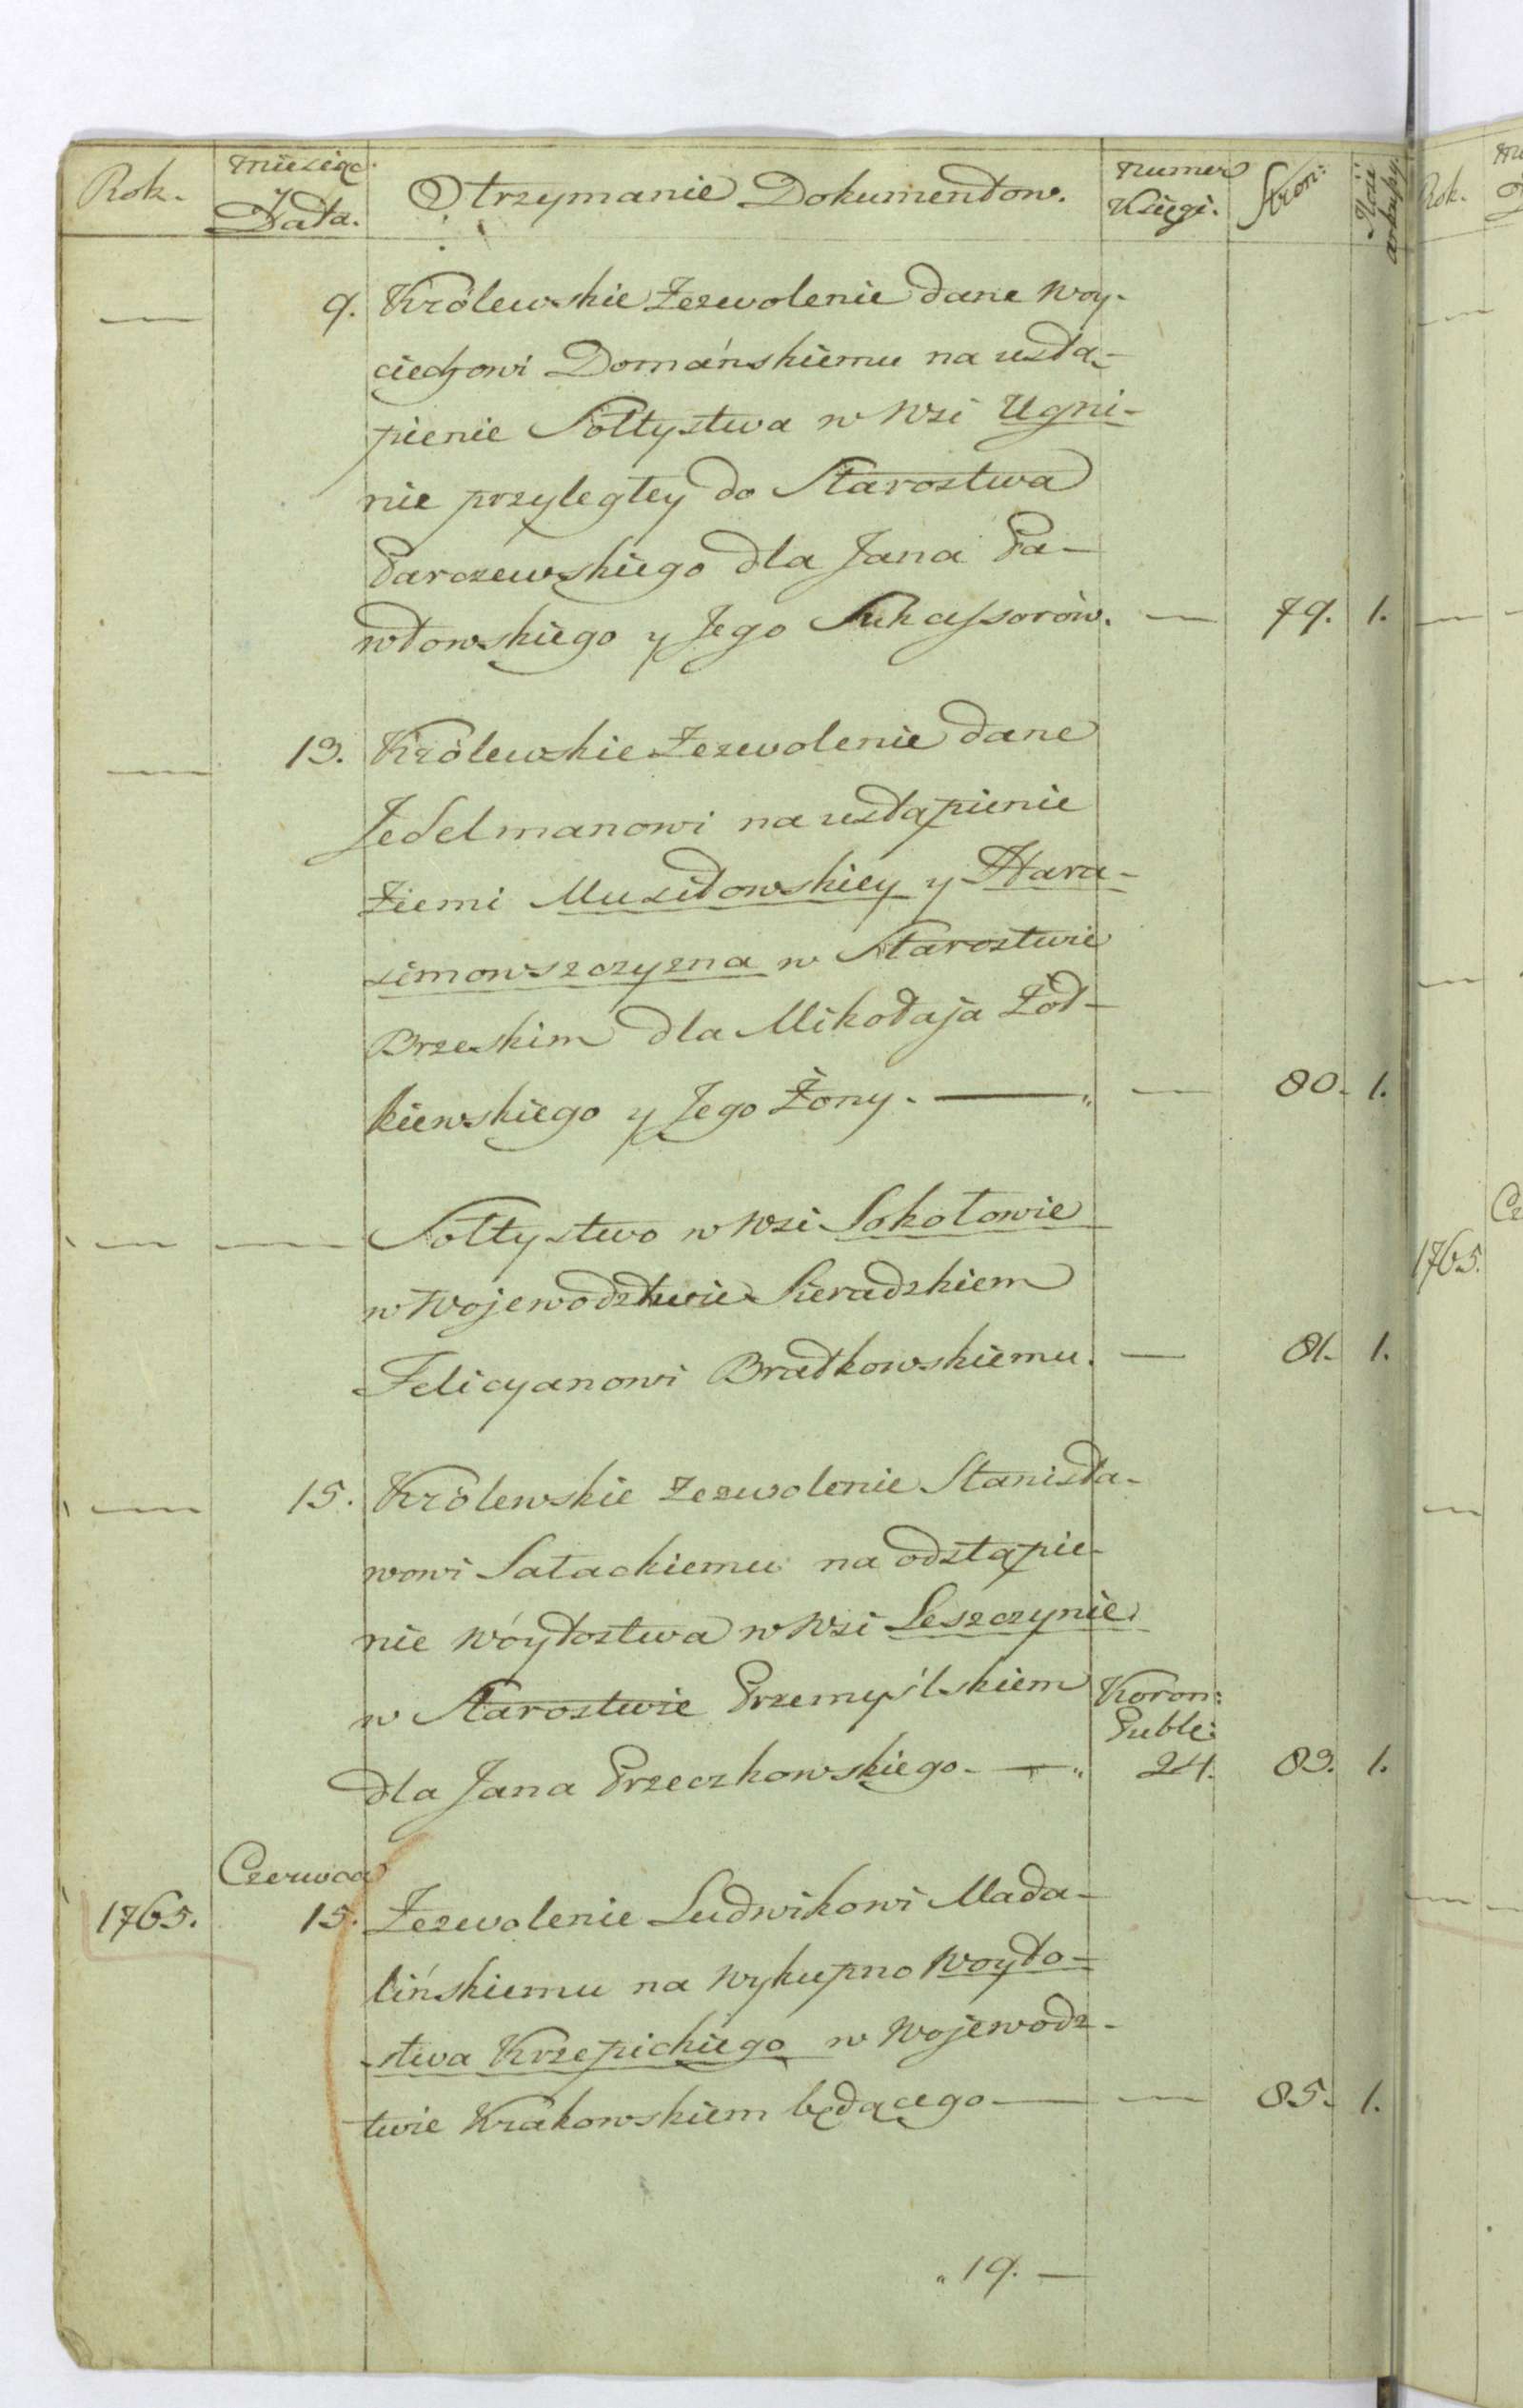 Rok. Miesiąc y Data. Otrzymanie Dokumentow. Numer Księgi. Stron: Ilość arkuszy
— 9. Królewskie Zezwolenie dane Woy-
ciechowi Domańskiemu na ustą-
pienie Sołtystwa w Wsi Ugni-
nie przyległey do Starostwa
Parczewskiego dla Jana Pa-
włowskiego y Jego Sukcessorów. — 79. 1.
— 13. Królewskie Zezwolenie dane
Jedelmanowi na ustąpienie
Ziemi Musiłowskiey y Hara-
simowszczyzna w Starostwie
Brzeskim dla Mikołaja Żół-
kiewskiego y Jego Żony. — — 80. 1.
— — Sołtystwo w Wsi Sokołowie
w Województwie Sieradzkiem
Felicyanowi Bratkowskiemu. — 81. 1.
— 15. Królewskie Zezwolenie Stanisła-
wowi Sałackiemu na odstąpie-
nie Wóytostwa w Wsi Leszczynie
w Starostwie Przemyślskiem Koron:
Publ:
dla Jana Przeczkowskiego. — 24. 83. 1.
Czerwca
1765. 15. Zezwolenie Ludwikowi Mada-
lińskiemu na wykupno Woyto-
stwa Krzepickiego w Wojewódz-
twie Krakowskiem będącego — — 85. 1.
19. —
Rok.
1765.